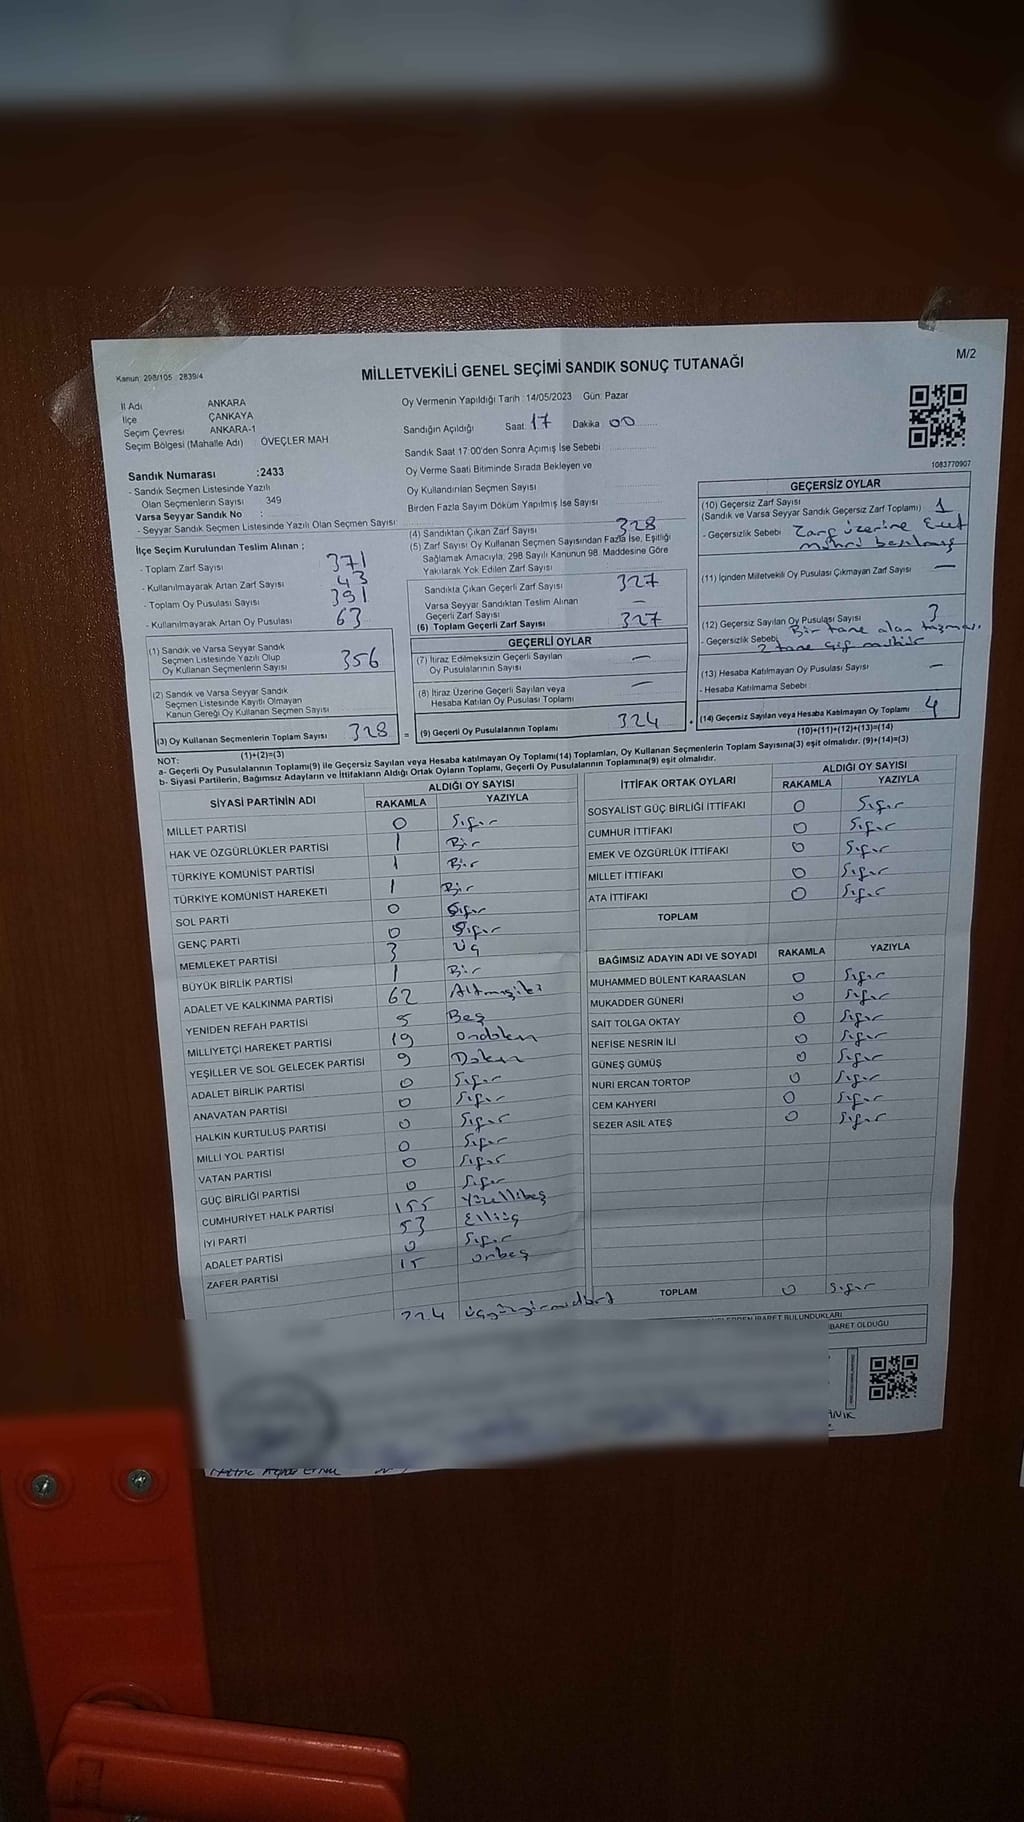 Kanun: 298/105 2839/4
MİLLETVEKİLİ GENEL SEÇİMİ SANDIK SONUÇ TUTANAĞI
M/2
İl Adı ANKARA
İlçe ÇANKAYA
Seçim Çevresi ANKARA-1
Seçim Bölgesi (Mahalle Adı) ÖVEÇLER MAH
Oy Vermenin Yapıldığı Tarih : 14/05/2023 Gün: Pazar
Sandığın Açıldığı Saat 17 Dakika 00
Sandık Saat 17:00'den Sonra Açımış İse Sebebi
Oy Verme Saati Bitiminde Sırada Bekleyen ve
Oy Kullandırılan Seçmen Sayısı
Birden Fazla Sayım Döküm Yapılmış İse Sayısı
1083770907
Sandık Numarası :2433
- Sandık Seçmen Listesinde Yazılı
Olan Seçmenlerin Sayısı 349
Varsa Seyyar Sandık No :
- Seyyar Sandık Seçmen Listesinde Yazılı Olan Seçmen Sayısı
İlçe Seçim Kurulundan Teslim Alınan ;
- Toplam Zarf Sayısı 371
- Kullanılmayarak Artan Zarf Sayısı 43
- Toplam Oy Pusulası Sayısı 391
- Kullanılmayarak Artan Oy Pusulası 63
(1) Sandık ve Varsa Seyyar Sandık
Seçmen Listesinde Yazılı Olup
Oy Kullanan Seçmenlerin Sayısı 356
(2) Sandık ve Varsa Seyyar Sandık
Seçmen Listesinde Kayıtlı Olmayan
Kanun Gereği Oy Kullanan Seçmen Sayısı
(3) Oy Kullanan Seçmenlerin Toplam Sayısı 328
(1)+(2)=(3)
(4) Sandıktan Çıkan Zarf Sayısı 328
(5) Zarf Sayısı Oy Kullanan Seçmen Sayısından Fazla İse, Eşitliği
Sağlamak Amacıyla, 298 Sayılı Kanunun 98. Maddesine Göre
Yakılarak Yok Edilen Zarf Sayısı
Sandıkta Çıkan Geçerli Zarf Sayısı 327
Varsa Seyyar Sandıktan Teslim Alınan
Geçerli Zarf Sayısı —
(6) Toplam Geçerli Zarf Sayısı 327
GEÇERLİ OYLAR
(7) İtiraz Edilmeksizin Geçerli Sayılan
Oy Pusulalarının Sayısı —
(8) İtiraz Üzerine Geçerli Sayılan veya
Hesaba Katılan Oy Pusulası Toplamı —
= (9) Geçerli Oy Pusulalarının Toplamı 324
GEÇERSİZ OYLAR
(10) Geçersiz Zarf Sayısı
(Sandık ve Varsa Seyyar Sandık Geçersiz Zarf Toplamı) 1
- Geçersizlik Sebebi Zarf üzerine Evet
mührü basılmış
(11) İçinden Milletvekili Oy Pusulası Çıkmayan Zarf Sayısı —
(12) Geçersiz Sayılan Oy Pusulası Sayısı 3
- Geçersizlik Sebebi Bir tane alan taşması
2 tane çift mühür
(13) Hesaba Katılmayan Oy Pusulası Sayısı —
- Hesaba Katılmama Sebebi
(14) Geçersiz Sayılan veya Hesaba Katılmayan Oy Toplamı 4
(10)+(11)+(12)+(13)=(14)
NOT:
a- Geçerli Oy Pusulalarının Toplamı(9) ile Geçersiz Sayılan veya Hesaba katılmayan Oy Toplamı(14) Toplamları, Oy Kullanan Seçmenlerin Toplam Sayısına(3) eşit olmalıdır. (9)+(14)=(3)
b- Siyasi Partilerin, Bağımsız Adayların ve İttifakların Aldığı Ortak Oyların Toplamı, Geçerli Oy Pusulalarının Toplamına(9) eşit olmalıdır.
SİYASİ PARTİNİN ADI
ALDIĞI OY SAYISI
RAKAMLA YAZIYLA
MİLLET PARTİSİ 0 Sıfır
HAK VE ÖZGÜRLÜKLER PARTİSİ 1 Bir
TÜRKİYE KOMÜNİST PARTİSİ 1 Bir
TÜRKİYE KOMÜNİST HAREKETİ 1 Bir
SOL PARTİ 0 Sıfır
GENÇ PARTİ 0 Sıfır
MEMLEKET PARTİSİ 3 Üç
BÜYÜK BİRLİK PARTİSİ 1 Bir
ADALET VE KALKINMA PARTİSİ 62 Altmışiki
YENİDEN REFAH PARTİSİ 5 Beş
MİLLİYETÇİ HAREKET PARTİSİ 19 Ondokuz
YEŞİLLER VE SOL GELECEK PARTİSİ 9 Dokuz
ADALET BİRLİK PARTİSİ 0 Sıfır
ANAVATAN PARTİSİ 0 Sıfır
HALKIN KURTULUŞ PARTİSİ 0 Sıfır
MİLLİ YOL PARTİSİ 0 Sıfır
VATAN PARTİSİ 0 Sıfır
GÜÇ BİRLİĞİ PARTİSİ 0 Sıfır
CUMHURİYET HALK PARTİSİ 155 Yüzellibeş
İYİ PARTİ 53 Elliüç
ADALET PARTİSİ 0 Sıfır
ZAFER PARTİSİ 15 Onbeş
324 Üçyüzyirmidört
İTTİFAK ORTAK OYLARI
ALDIĞI OY SAYISI
RAKAMLA YAZIYLA
SOSYALİST GÜÇ BİRLİĞİ İTTİFAKI 0 Sıfır
CUMHUR İTTİFAKI 0 Sıfır
EMEK VE ÖZGÜRLÜK İTTİFAKI 0 Sıfır
MİLLET İTTİFAKI 0 Sıfır
ATA İTTİFAKI 0 Sıfır
TOPLAM
BAĞIMSIZ ADAYIN ADI VE SOYADI RAKAMLA YAZIYLA
MUHAMMED BÜLENT KARAASLAN 0 Sıfır
MUKADDER GÜNERİ 0 Sıfır
SAİT TOLGA OKTAY 0 Sıfır
NEFİSE NESRİN İLİ 0 Sıfır
GÜNEŞ GÜMÜŞ 0 Sıfır
NURİ ERCAN TORTOP 0 Sıfır
CEM KAHYERİ 0 Sıfır
SEZER ASİL ATEŞ 0 Sıfır
TOPLAM 0 Sıfır
İBARET BULUNDUKLARI
İBARET OLDUĞU